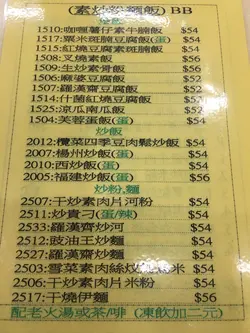 (素炒粉麵飯) BB
燴飯
1510:咖喱薯仔素牛腩飯 $54
1517:粟米斑腩豆腐飯(蛋) $54
1515:紅燒豆腐素斑腩飯 $54
1508:叉燒素飯 $54
1509:生炒素骨飯 $56
1506:麻婆豆腐飯 $54
1507:羅漢齋豆腐飯 $54
1514:什菌紅燒豆腐飯 $54
1525:涼瓜南瓜飯 $54
1504:芙蓉蛋飯(蛋) $54
炒飯
2012:欖菜四季豆肉鬆炒飯 $54
2007:楊州炒飯(蛋) $54
2010:西炒飯(蛋) $54
2005:福建炒飯(蛋) $56
炒粉,麵
2507:干炒素肉片河粉 $54
2511:炒貴刁(蛋/辣) $54
2533:羅漢齋炒河 $54
2512:豉油王炒麵 $54
2527:羅漢齋炒麵 $54
2503:雪菜素肉絲炆米 $54
2506:干炒素肉片米粉 $54
2517:干燒伊麵 $56
配老火湯或茶/啡 (凍飲加二元)